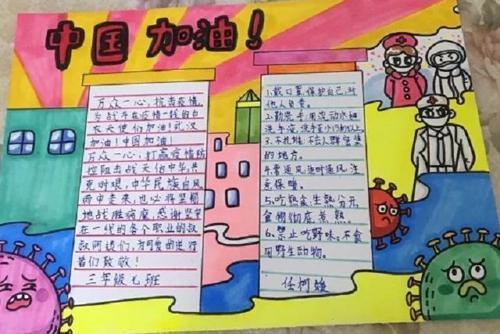 中国 加油!
万众一心,抗击疫情,
为战斗在疫情一线的白
衣天使们加油!武汉
加油!中国加油!
万众一心,打赢疫情防
控阻击战
克时艰,中华民族自风
雨中走来,也必将坚韧
地战胜病魔,感谢坚守
在一线的各个职业的叔
叔阿姨们,为可爱的逆行
者们致敬!
三年级七班
1.戴口罩,保护自己,对
他人负责。
2.勤洗手,用流动水和
洗手液
3.不扎堆,不去人群密集
的地方。
4.常通风,适时通风,注
意保暖。
5.吃熟食,生熟分开,
食物彻底煮熟
6.禁止吃野味,不食
用野生动物。